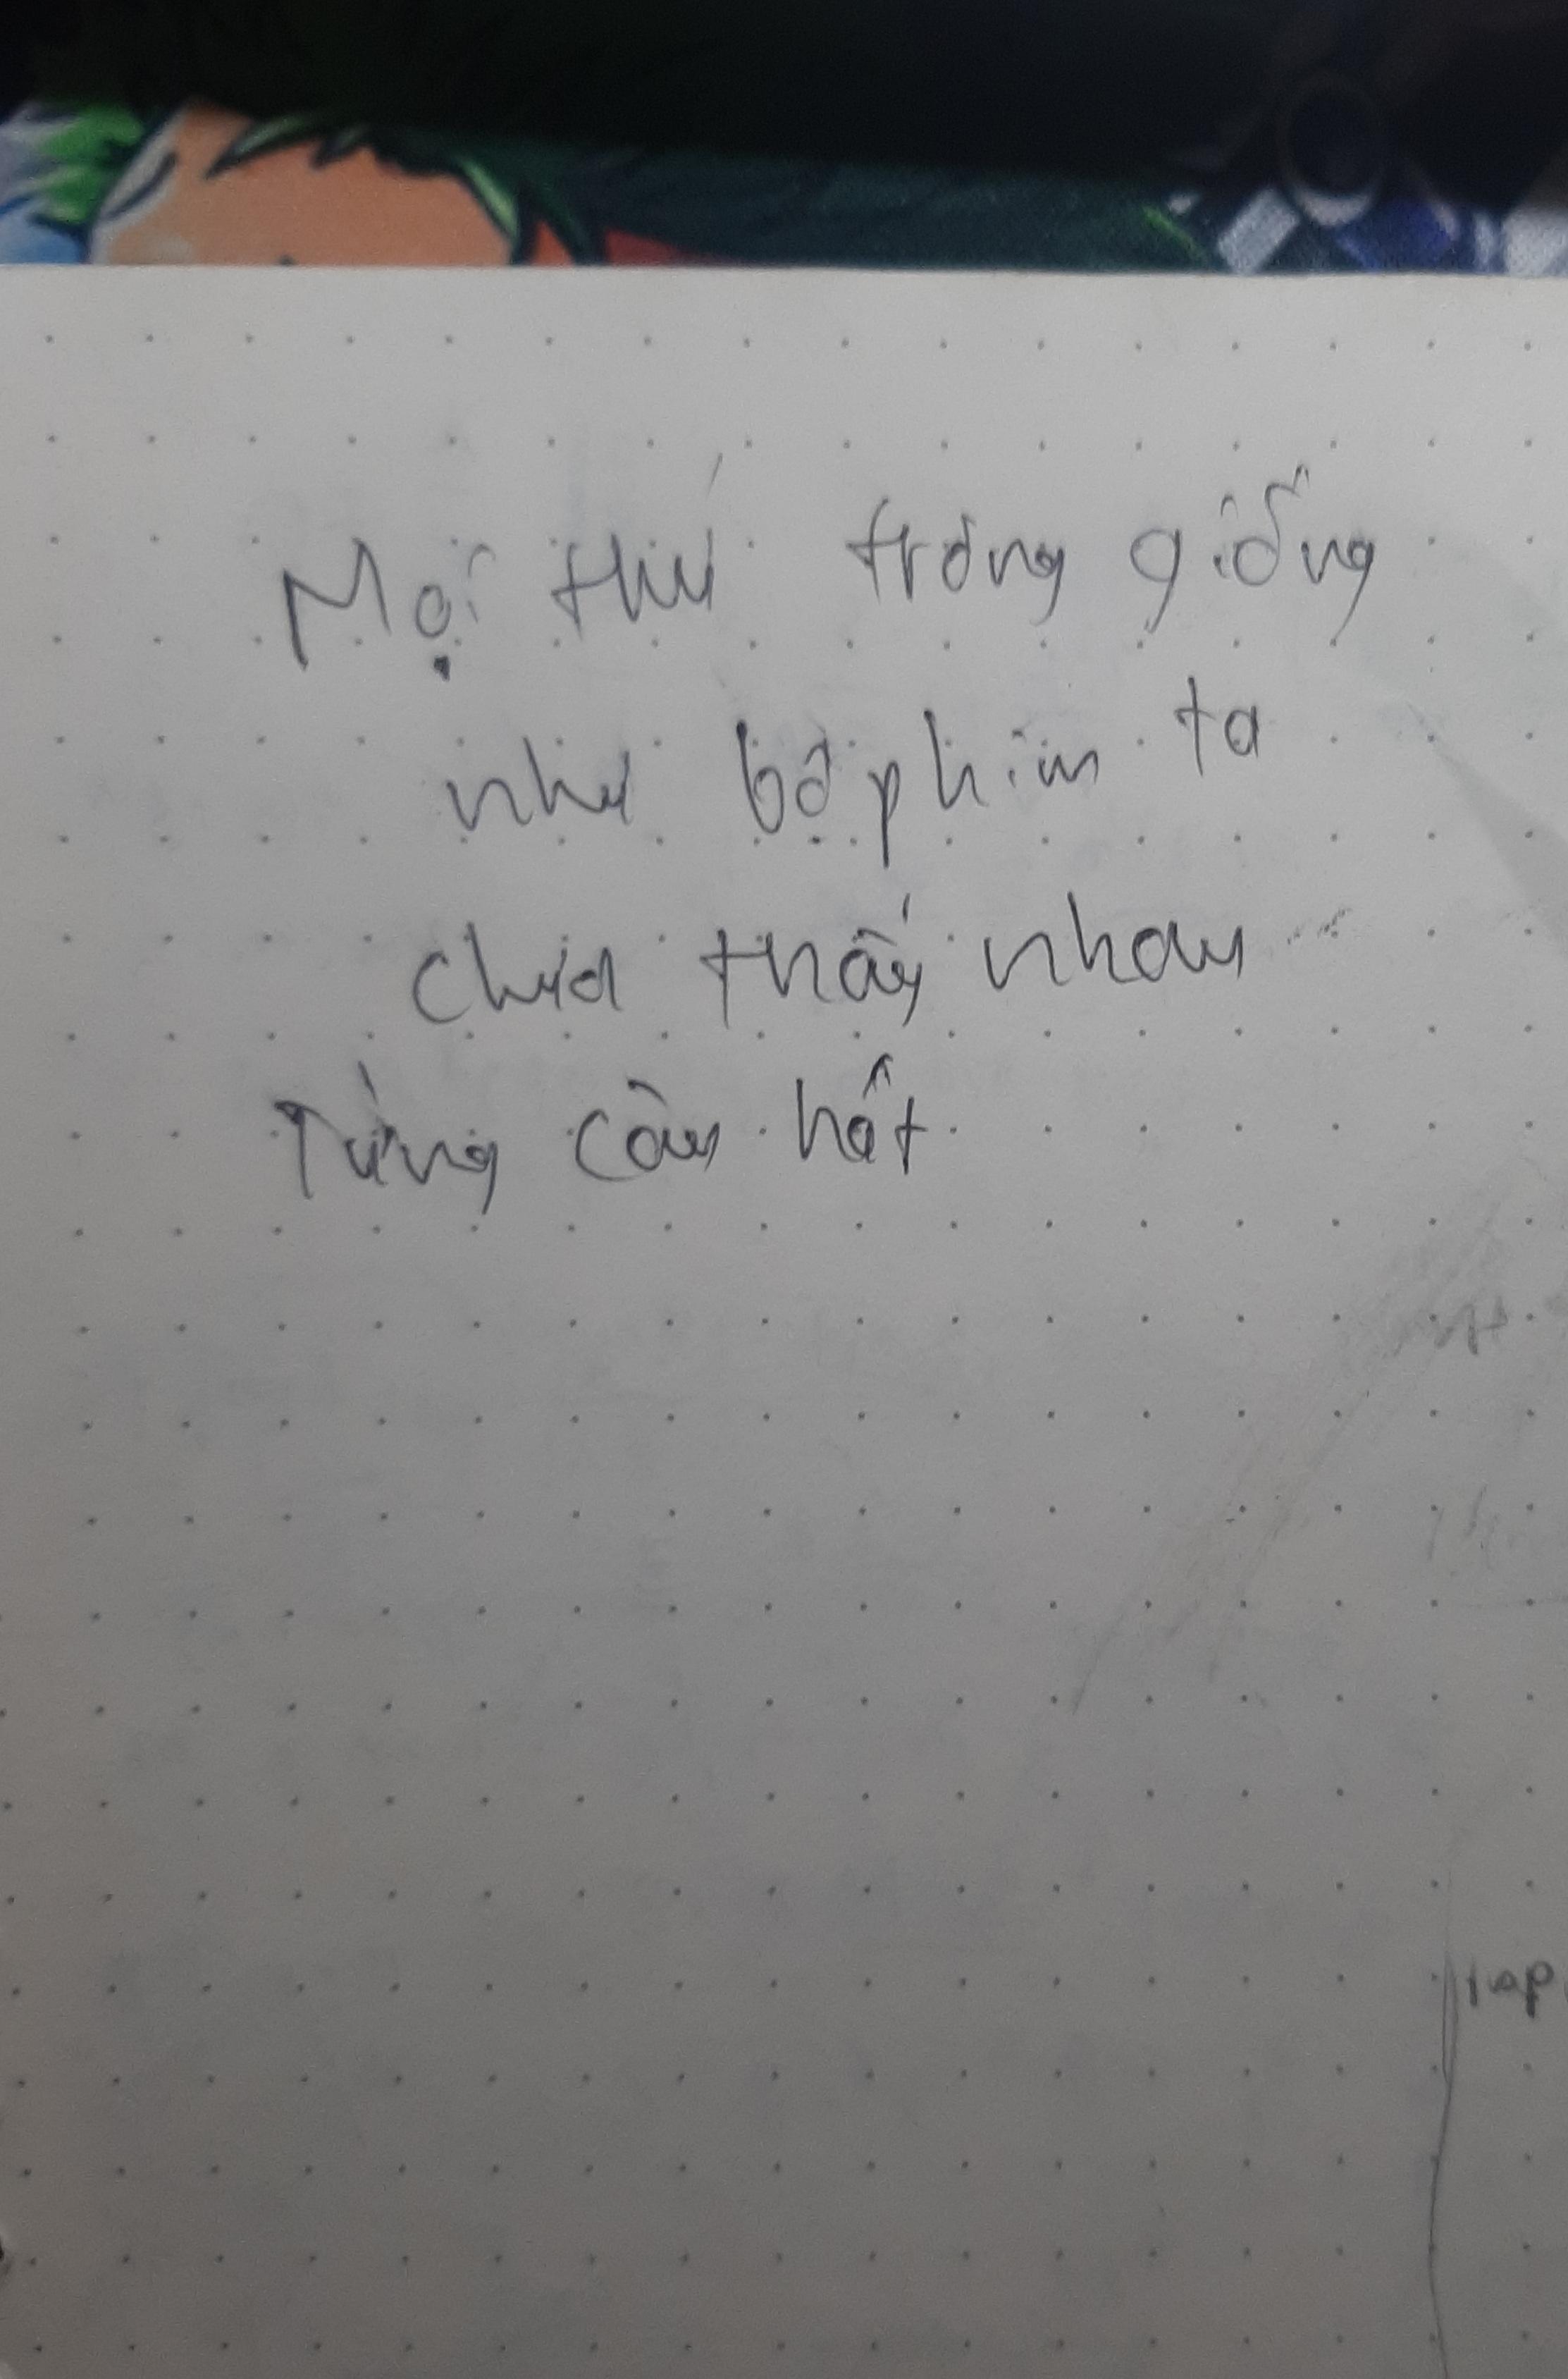 Mọi thứ trông giống
như bộ phim ta
chưa thấy nhau
Từng câu hát